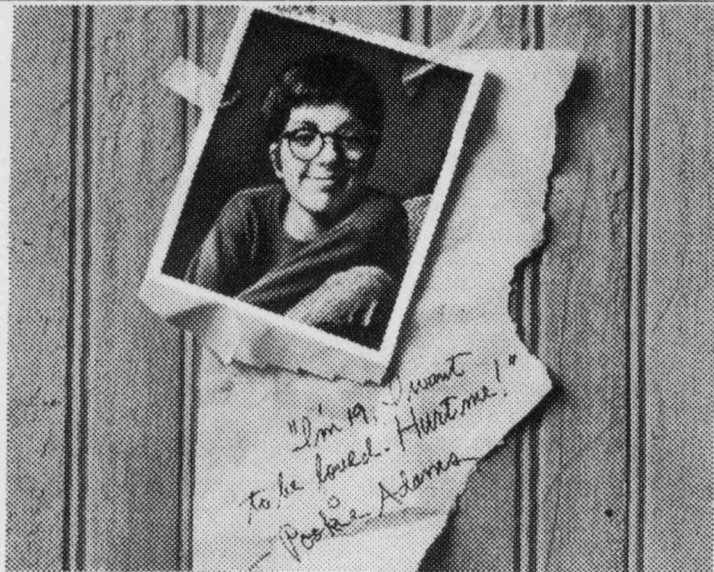 "I'm 19. I want
to be loved. Hurt me!"
—Pookie Adams